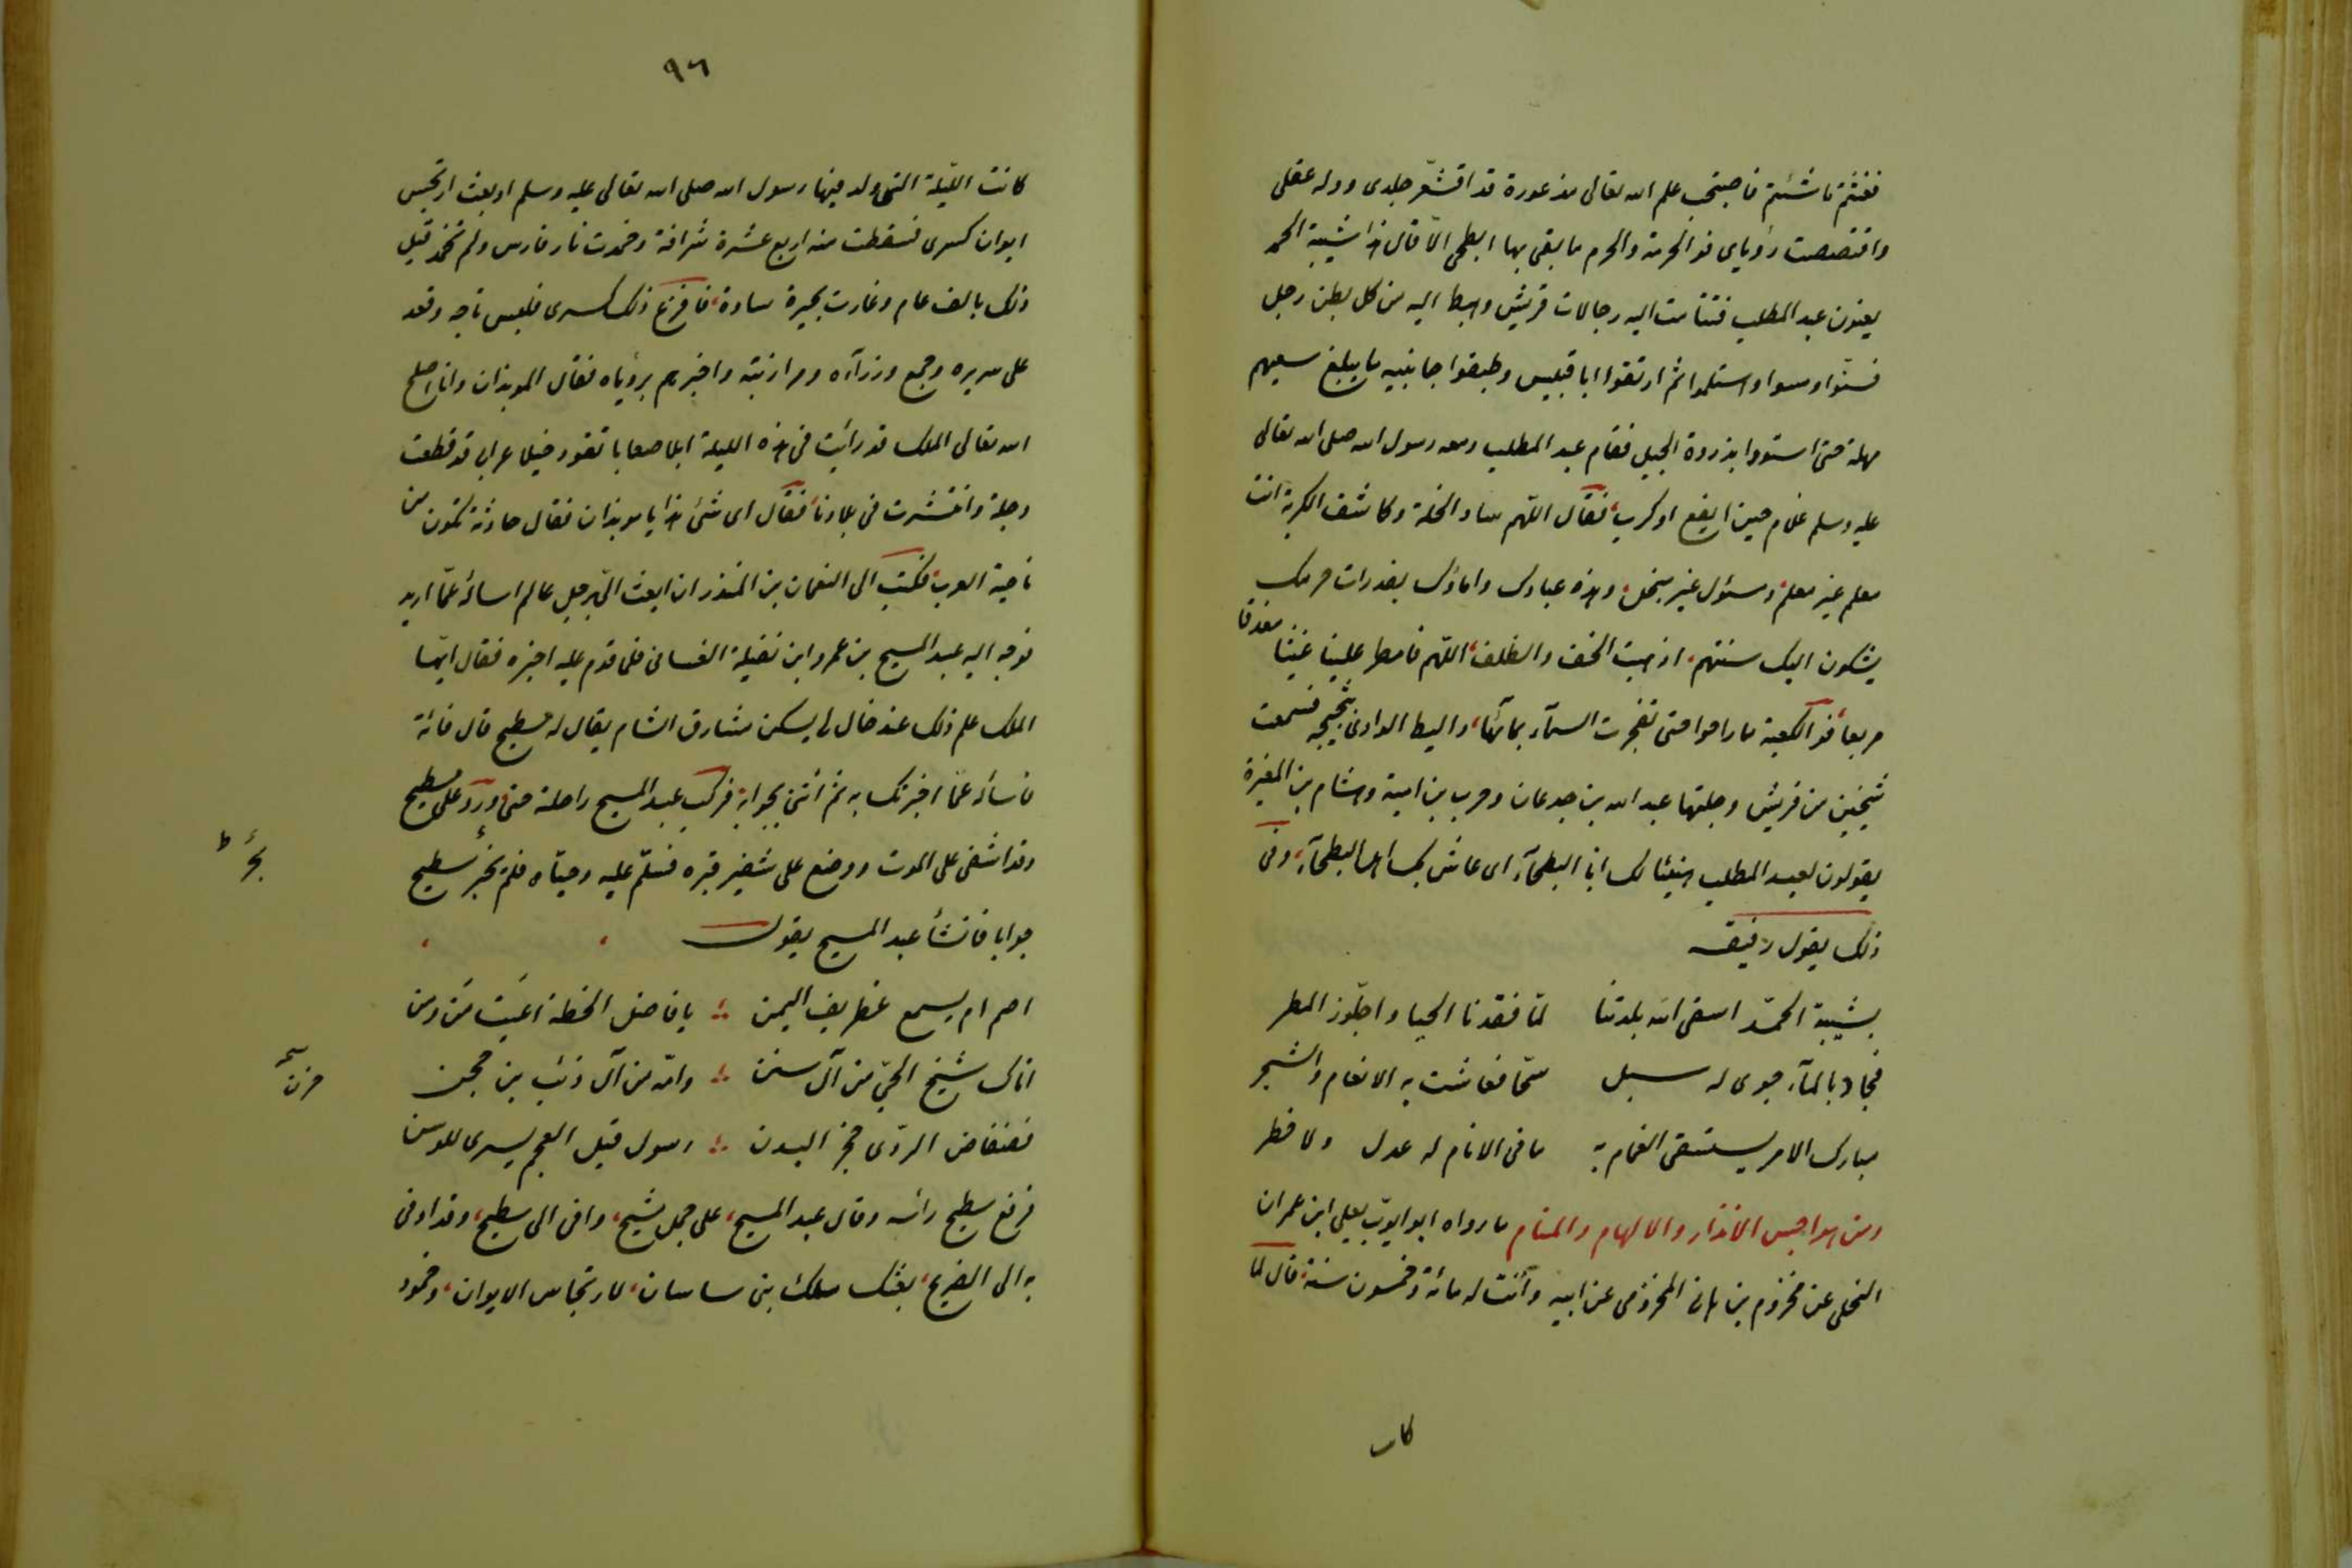 فغثتم ما شئتم فاصبحت علم الله تعالى مذعورة قد اقشعّر جلدى ووله عقلى
واقتصصت رؤياى فو الحرمة والحرم ما بقى بها ابطحى الّا قال هذا شيبة الحمد
يعنون عبد المطلب فتتامت اليه رجالات قريش وهبط اليه من كل بطن رجل
فشنّوا ومسوا واستلموا ثم ارتقوا ابا قبيس وطبقوا جانبيه ما يبلغ سعيهم
مهله حتى استووا بذروة الجبل فقام عبد المطلب ومعه رسول الله صلى الله تعالى
عليه وسلم غلام حين ايفع او كرب، فقال اللهم ساد الخلة وكاشف الكربة انت
معلم غير معلم، ومسئول غير مبخل، وهذه عبادك واماؤك بعذرات حرمك
يشكون اليك سنتهم، اذهبت الخف والظلف، اللهم فامطر علينا غيثا مغدقا
مريعا، فو الكعبة ما راموا حتى تفجرت السمآء بمآئها، واليط الوادى بثجيجه فسمعت
شيخين من قريش وجلتها عبد الله بن جدعان وحرب بن امية وهشام بن المغيرة
يقولون لعبد المطلب هنيئا لك ابا البطحآء اى عاش بك اهل البطحآء، وفى
ذلك يقول رقيقه
بشيبة الحمد اسقى الله بلدتنا لمّا فقدنا الحيا واجلوّذ المطر
فجاد بالمآء جوى له سبل سحّا فعاشت به الانعام والشجر
مبارك الامر يستسقى الغمام به ما فى الانام له عدل ولا خطر
ومن هواجس الانذار والالهام والمنام ما رواه ابو ايوب يعلى ابن عمران
النحلى عن مخزوم بن هانى المخزومى عن ابيه وأتت له مائة وخمسون سنة، قال لما
كانت
٩٦
كانت الليلة التى ولد فيها رسول الله صلى الله تعالى عليه وسلم او بعث ارتجس
ايوان كسرى فسقطت منه اربع عشرة شرافة وخمدت نار فارس ولم تخمد قبل
ذلك بالف عام وغارت بحيرة ساوة، فافزع ذلك كسرى فلبس تاجه وقعد
على سريره وجمع وزرآءه ومرازبته واخبرهم برؤياه فقال الموبذان وانا اصلح
الله تعالى الملك قد رأيت فى هذه الليلة ابلا صعابا تقود خيلا عرابا قد قطعت
دجلة وانتشرت فى بلادنا، فقال اى شئ هذا يا موبذان فقال حادثة تكون من
ناحية العرب، فكتب الى النعمان بن المنذر ان ابعث الىّ برجل عالم اسأله عمّا اريد
فوجه اليه عبد المسيح بن عمرو ابن نفيلة الغسانى فلما قدم عليه اخبره فقال ايّها
الملك علم ذلك عند خال لى يسكن مشارق الشام يقال له سطيح قال فائته
فاسأله عمّا اخبرتك به ثم ائتنى بجوابه، فركب عبد المسيح راحلته حتى ورد على سطيح
وقد اشفى على الموت ووضع على شفير قبره فسلّم عليه وحيّاه فلم يحر سطيح
جوابا فانشأ عبد المسيح يقول
اصم ام يسمع غطريف اليمن يا فاضل الخطة اعيت من ومن
اتاك شيخ الحىّ من آل سنن وامّه من آل ذئب بن حجن
فضفاض الردى مجز البدن رسول قيل العجم يسرى للوسن
فرفع سطيح رأسه وقال عبد المسيح، على جمل مشيح، وافى الى سطيح، وقد اوفى
به الى الضريح، بعثك ملك بنى ساسان، لارتجاس الايوان، وخمود